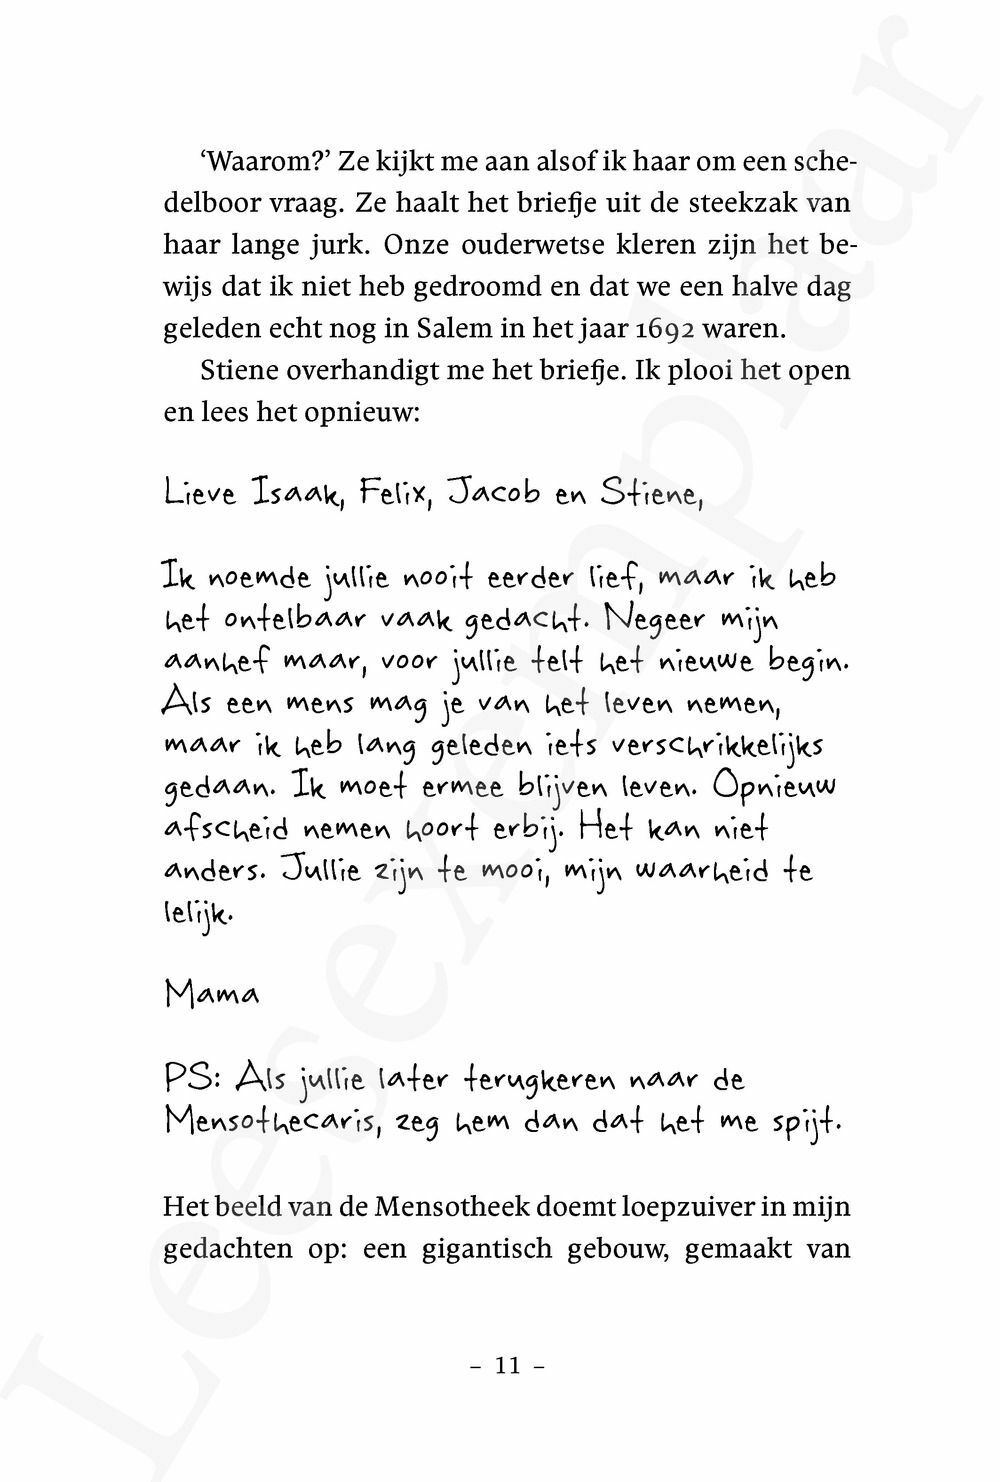 ‘Waarom?’ Ze kijkt me aan alsof ik haar om een sche-
delboor vraag. Ze haalt het briefje uit de steekzak van
haar lange jurk. Onze ouderwetse kleren zijn het be-
wijs dat ik niet heb gedroomd en dat we een halve dag
geleden echt nog in Salem in het jaar 1692 waren.
Stiene overhandigt me het briefje. Ik plooi het open
en lees het opnieuw:
Lieve Isaak, Felix, Jacob en Stiene,
Ik noemde jullie nooit eerder lief, maar ik heb
het ontelbaar vaak gedacht. Negeer mijn
aanhef maar, voor jullie telt het nieuwe begin.
Als een mens mag je van het leven nemen,
maar ik heb lang geleden iets verschrikkelijks
gedaan. Ik moet ermee blijven leven. Opnieuw
afscheid nemen hoort erbij. Het kan niet
anders. Jullie zijn te mooi, mijn waarheid te
lelijk.
Mama
PS: Als jullie later terugkeren naar de
Mensothecaris, zeg hem dan dat het me spijt.
Het beeld van de Mensotheek doemt loepzuiver in mijn
gedachten op: een gigantisch gebouw, gemaakt van
– 11 –
Leesexemplaar